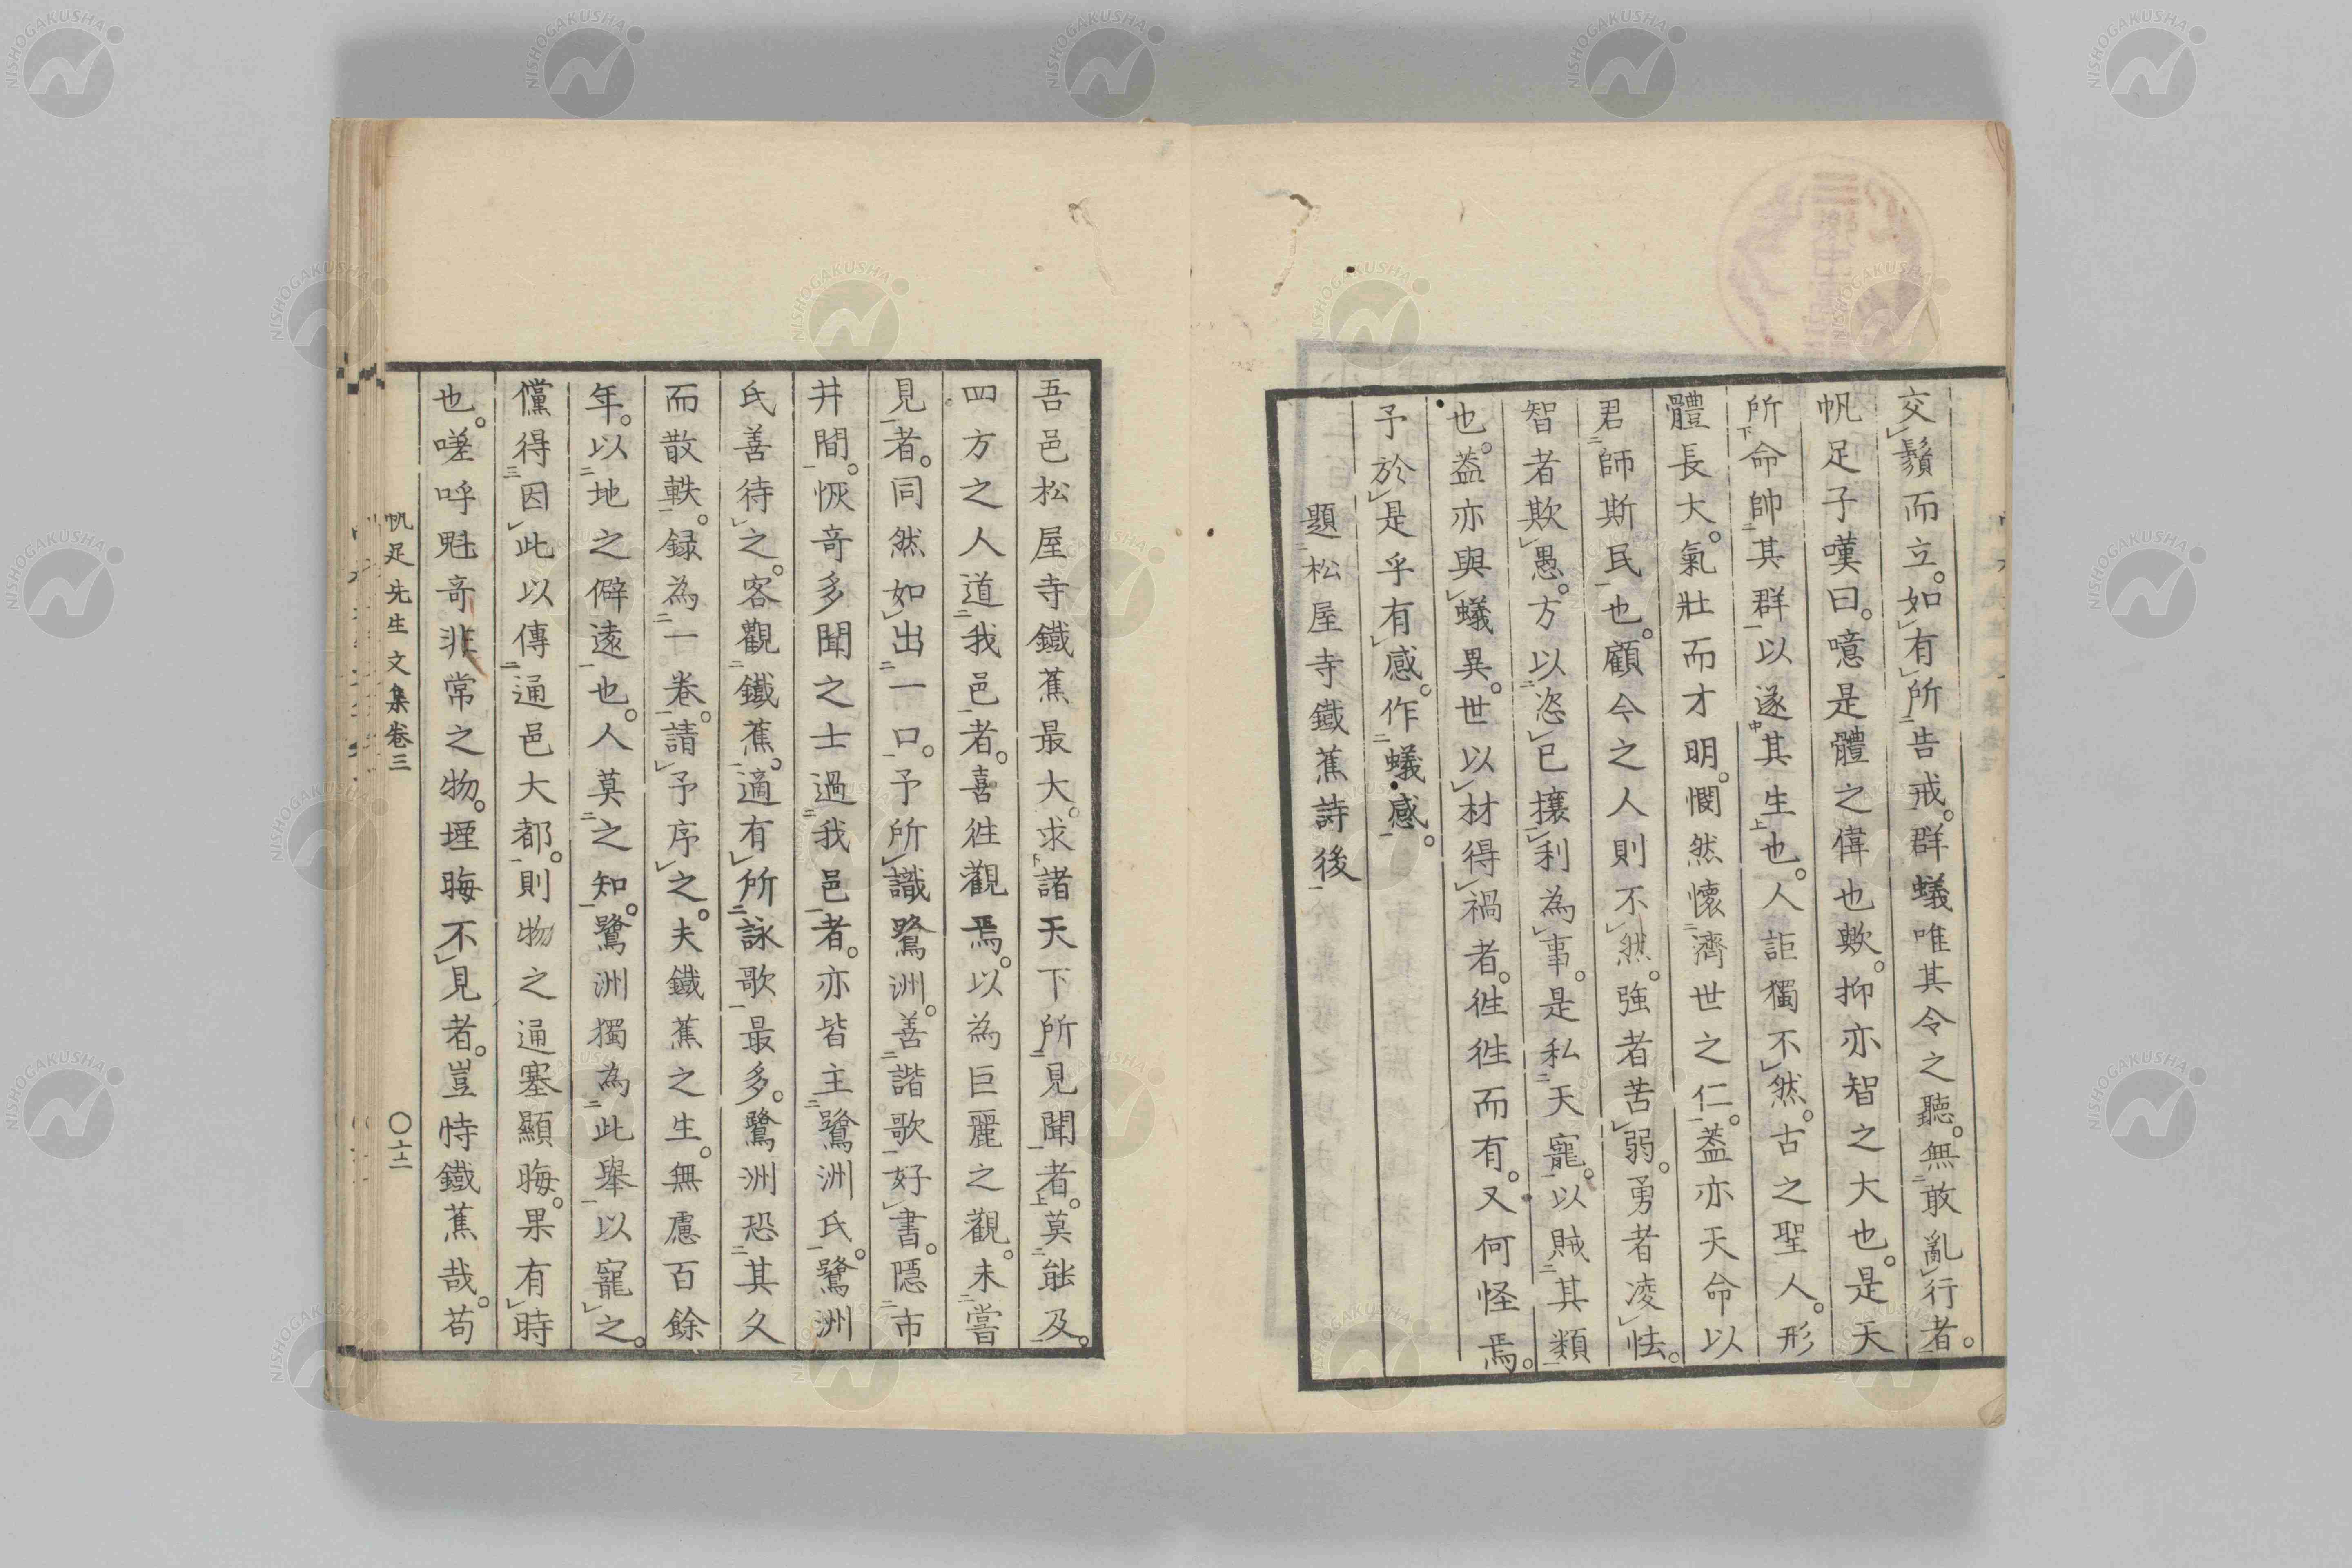 交鬚而立。如有所告戒。群蟻唯其令之聽。無敢亂行者。
帆足子嘆曰。噫是體之偉也歟。抑亦智之大也。是天
所命帥其群以遂其生也。人詎獨不然。古之聖人。形
體長大。氣壯而才明。憫然懷濟世之仁。盖亦天命以
君師斯民也。顧今之人則不然。強者苦弱。勇者凌怯。
智者欺愚。方以恣已攘利為事。是私天寵。以賊其類
也。盖亦與蟻異。世以材得禍者。徃徃而有。又何怪焉。
予於是乎有感。作蟻感。
題松屋寺鐵蕉詩後
吾邑松屋寺鐵蕉最大。求諸天下所見聞者。莫能及。
四方之人道我邑者。喜徃觀焉。以為巨麗之觀。未嘗
見者。同然如出一口。予所識鷺洲。善諧歌好書。隱市
井間。恢奇多聞之士過我邑者。亦皆主鷺洲氏。鷺洲
氏善待之。客觀鐵蕉。適有所詠歌最多。鷺洲恐其久
而散軼。録為一卷。請予序之。夫鐵蕉之生。無慮百餘
年。以地之僻遠也。人莫之知。鷺洲獨為此舉以寵之。
儻得因此以傳通邑大都。則物之通塞顯晦。果有時
也。嗟呼魁奇非常之物。堙晦不見者。豈恃鐵蕉哉。苟
帆足先生文集卷三
〇十二
NISHOGAKUSHA